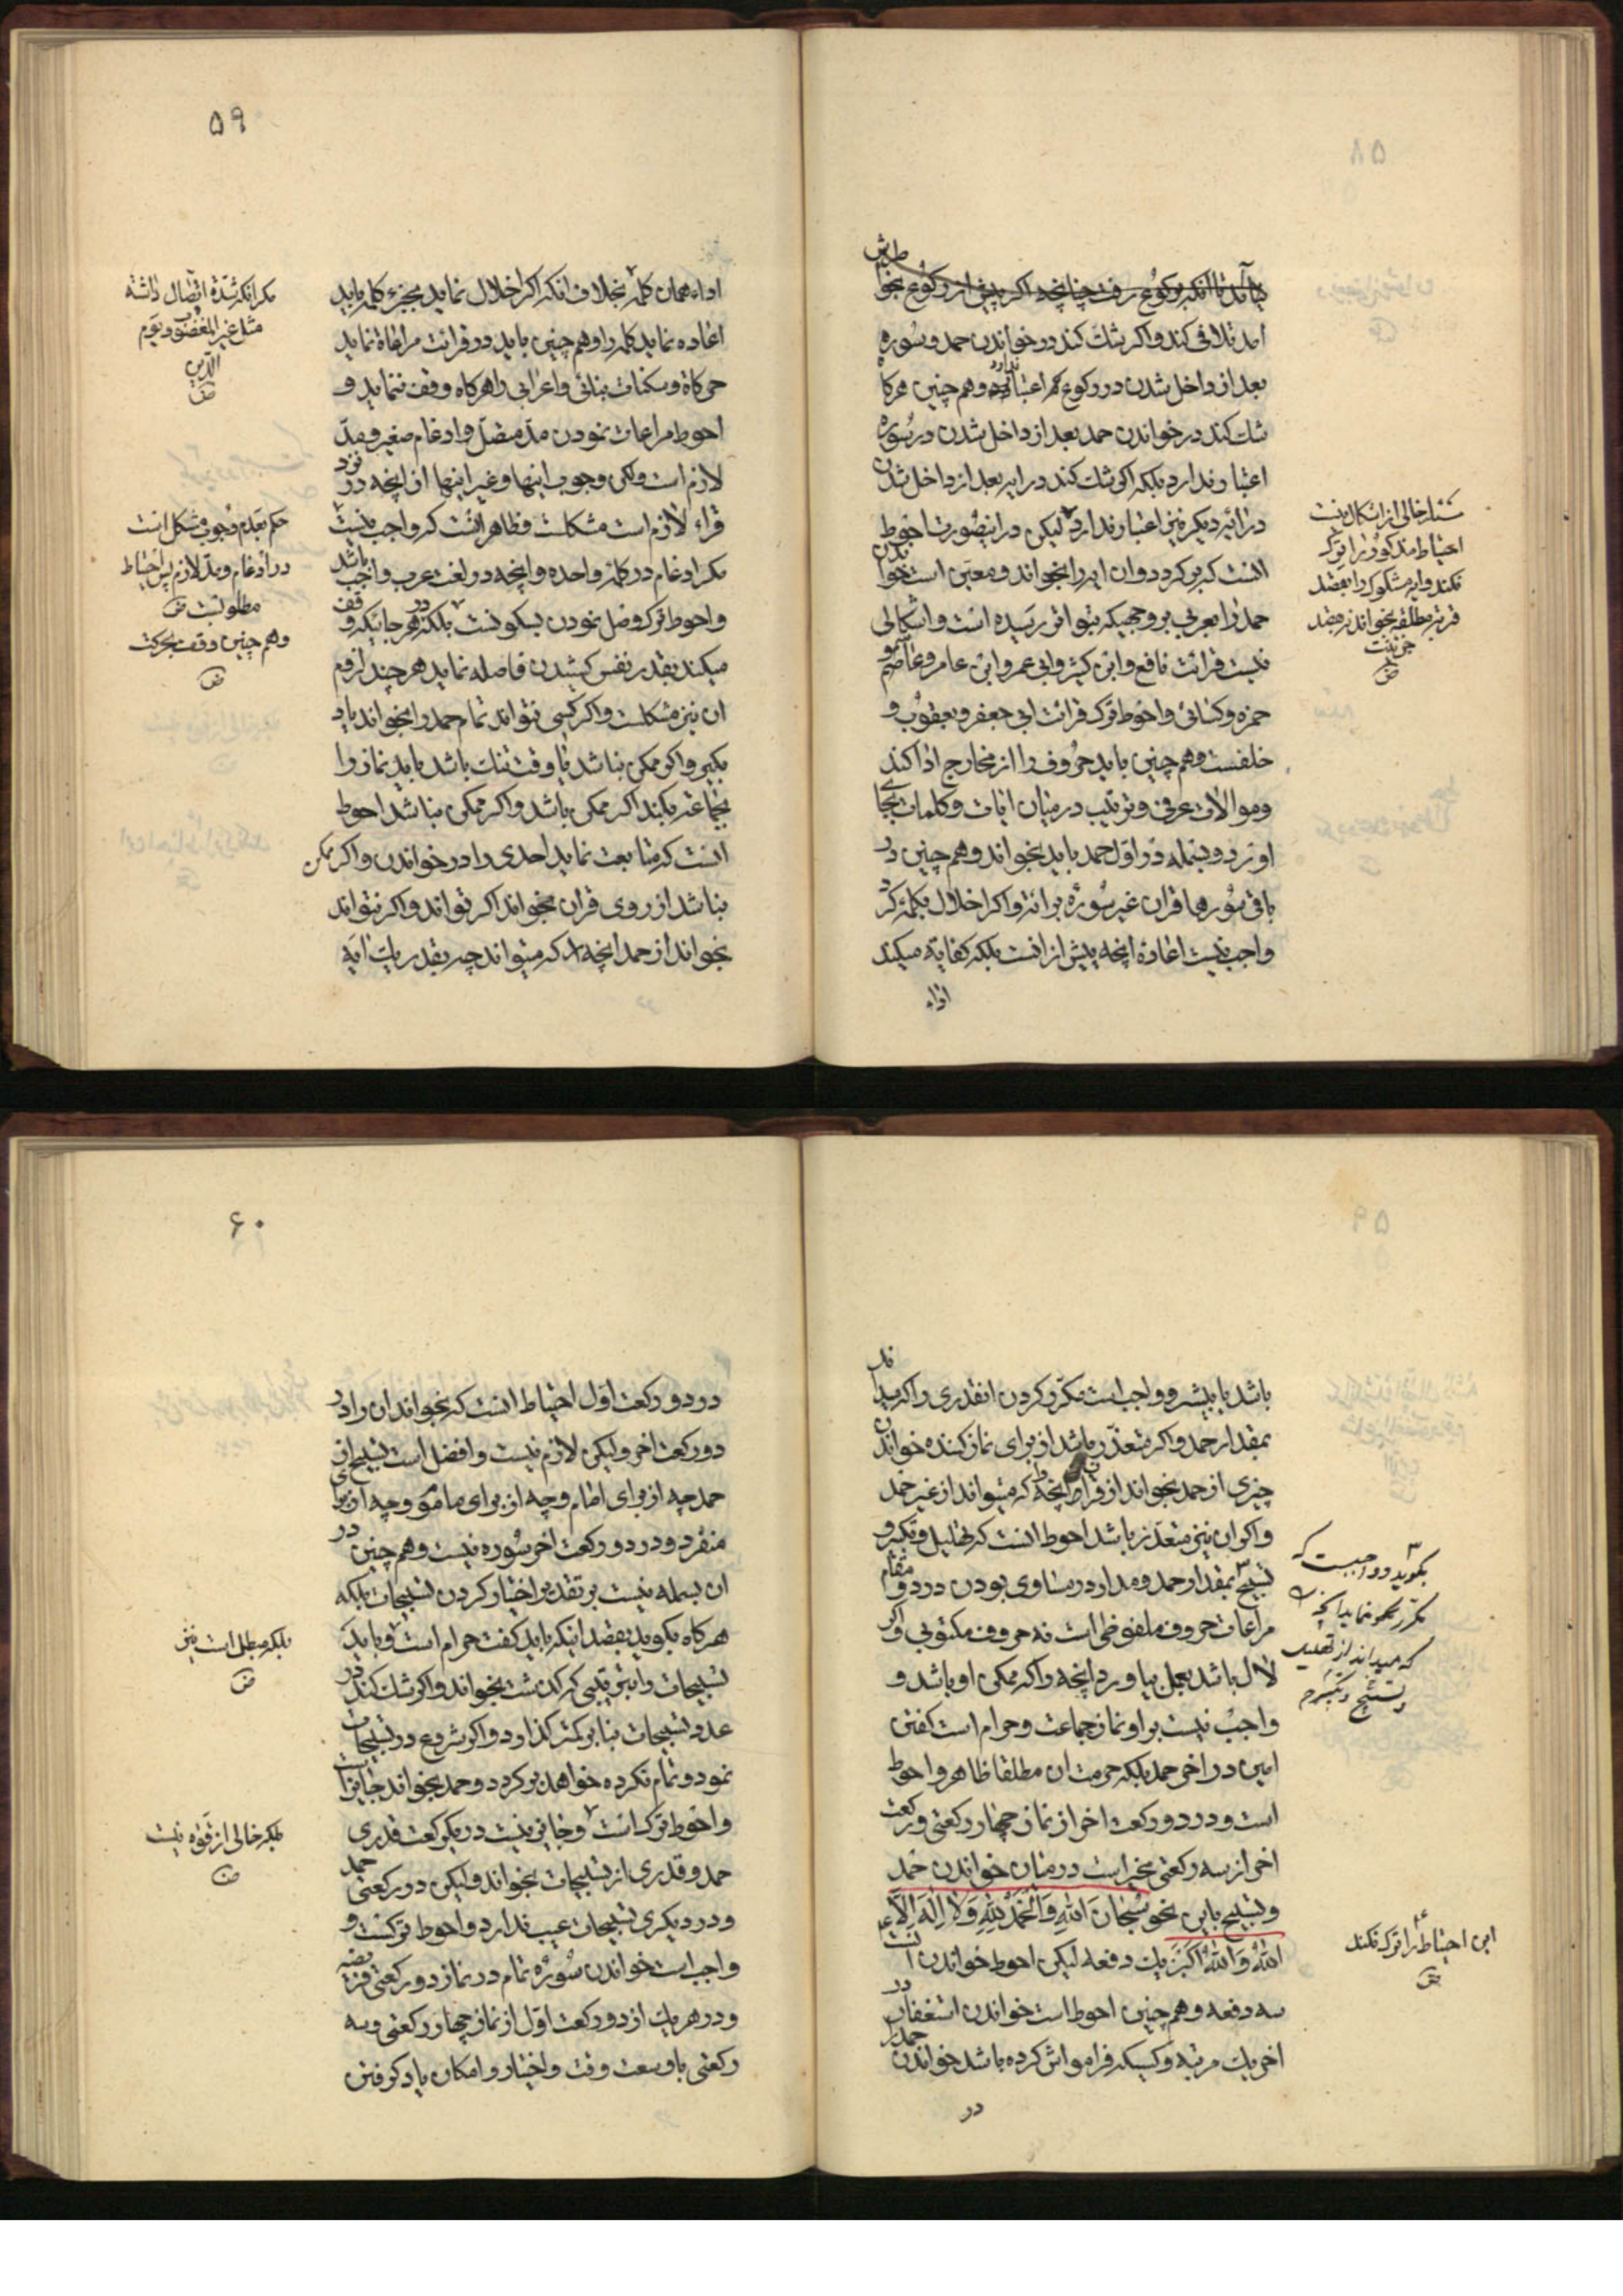 ۵۹
نیامد تا آنکه برکوع رفت چنانچه اکر پیش از رکوع بخوا
طرش
امد تلافی کند واکر شک کند در خواندن حمد وسوره
بعد از داخل شدن در رکوع هم اعتبار ندارد وهم چنین هرکا
شک کند در خواندن حمد بعد از داخل شدن در سوره
اعتبار ندارد بلکه اکر شک کند در ایه بعد از داخل شدن
در ایه دیکر نیز اعتبار ندارد لیکن در اینصورت احوط
انست که بر کردد وان ایه را بخواند ومعین است خوا
ندن
حمد را بعربی بر وجهیکه بتواتر رسیده است واشکالی
نیست قرائت نافع وابن کثیر وابی عمرو وابن عامر وعاصم و
حمزه وکسائی واحوط ترک قرائت ابی جعفر ویعقوب و
خلفست وهم چنین باید حروف را از مخارج ادا کند
وموالات عرفی وترتیب در میان ایات وکلمات بجا
اورد وبسمله در اول حمد باید بخواند وهم چنین در
باقی سورها قران غیر سوره برائة واکر اخلال بکلمه کرد
واجب نیست اعاده انچه پیش از انست بلکه کفایة میکند
اداء
مسئله خالی از اشکال نیست
احتیاط مذکور را ترک
نکند وایه مشکوک را بقصد
قربة مطلقه بخواند نه بقصد
جزئیت
ض
اداء همان کلمه بخلاف انکه اکر اخلال نماید بجزء کلمه باید
اعاده نماید کلمه را وهم چنین باید در قرائت مراعاة نماید
حرکاة وسکنات بنائی واعرابی را هرکاه وقف ننماید و
احوط مراعات نمودن مد متصل وادغام صغیر ومد
لازم است ولکن وجوب اینها وغیر اینها از انچه در نزد
قراء لازم است مشکلست وظاهر انست که واجب نیست
مکر ادغام در کلمه واحده وانچه در لغت عرب واجب باشد
واحوط ترک وصل نمودن بسکونست بلکه در هر جائیکه وقف
میکند بقدر نفس کشیدن فاصله نماید هر چند لزوم
ان نیز مشکلست واکر کسی نتواند تمام حمد را بخواند یاد
بکیرد واکر ممکن نباشد یا وقت تنک باشد باید نماز را
بجماعت بکند اکر ممکن باشد واکر ممکن نباشد احوط
انست که متابعت نماید احدی را در خواندن واکر ممکن
نباشد از روی قران بخواند اکر تواند واکر نتواند
بخواند از حمد انچه را که میتواند چه بقدر یک ایه
مکر انکه شدة اتصال داشته
مثل غیر المغضوب ویوم
الدین
ض
حکم بعدم وجوب مشکل است
در ادغام ومد لازم پس احتیاط
مطلوبست ض
وهم چنین وقف بحرکت
ض
۶۰
باشد یا بیشتر وواجب است مکرر کردن انقدری را که میدا
ند
بمقدار حمد واکر متعذر باشد از برای نماز کننده خواندن
چیزی از حمد بخواند از قران انچه را که میتواند از غیر حمد
واکر ان نیز متعذر باشد احوط انست که تهلیل وتکبیر و
تسبیح بمقدار حمد ومدار در مساوی بودن در دو مقام
مراعات حروف ملفوظی است نه حروف مکتوبی واکر
لال باشد بعمل بیاورد انچه را که ممکن او باشد و
واجب نیست بر او نماز جماعت وحرام است کفتن
امین در اخر حمد بلکه حرمت ان مطلقا ظاهر واحوط
است ودر دو رکعت اخر از نماز چهار رکعتی ورکعت
اخر از سه رکعتی مخیر است در میان خواندن حمد
وتسبیح باین نحو سُبْحانَ اللهِ وَالْحَمْدُ لِلّهِ وَلا اِلٰهَ اِلَّا
اللهُ وَاللهُ اَکْبَر یک دفعه لیکن احوط خواندن انست
سه دفعه وهم چنین احوط است خواندن استغفار در
اخر یک مرتبه وکسیکه فراموش کرده باشد خواندن حمد را
در
بکوید وواجبست که
مکرر نماید انچه را
که میداند از تهلیل
وتسبیح وتکبیر
این احتیاط را ترک نکند
ض
در دو رکعت اول احتیاط انست که بخواند ان را در
دو رکعت اخر ولیکن لازم نیست وافضل است تسبیح از
حمد چه از برای امام وچه از برای ماموم وچه از برای
منفرد ودر دو رکعت اخر سوره نیست وهم چنین در
ان بسمله نیست بر تقدیر اختیار کردن تسبیحات بلکه
هرکاه بکوید بقصد اینکه باید کفت حرام است وباید
تسبیحات را بترتیبی که کذشت بخواند واکر شک کند در
عدد تسبیحات بنا بر کمتر کذارد واکر شروع در تسبیحات
نمود وتمام نکرده خواهد بر کردد وحمد بخواند جایز است
واحوط ترک است وجایز نیست در یک رکعت قدری
حمد وقدری از تسبیحات بخواند ولیکن در رکعتی حمد
ودر دیکری تسبیحات عیب ندارد واحوط ترکست و
واجب است خواندن سوره تمام در نماز دو رکعتی فریضه
ودر هر یک از دو رکعت اول از نماز چهار رکعتی وسه
رکعتی با وسعت وقت واختیار وامکان یاد کرفتن
بلکه مبطل است نیز
ض
بلکه خالی از قوه نیست
ض